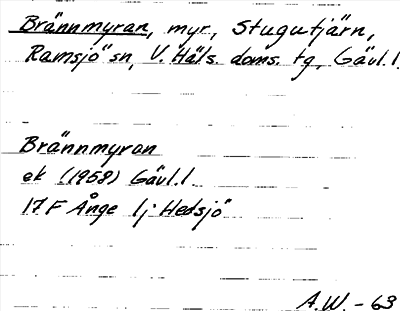 Brännmyran, myr, Stugutjärn,
Ramsjö sn, V. Häls. doms. tg, Gävl.l
Brännmyran
ek (1958) Gävl.l
17F Ånge 1j Hedsjö
A.W. - 63